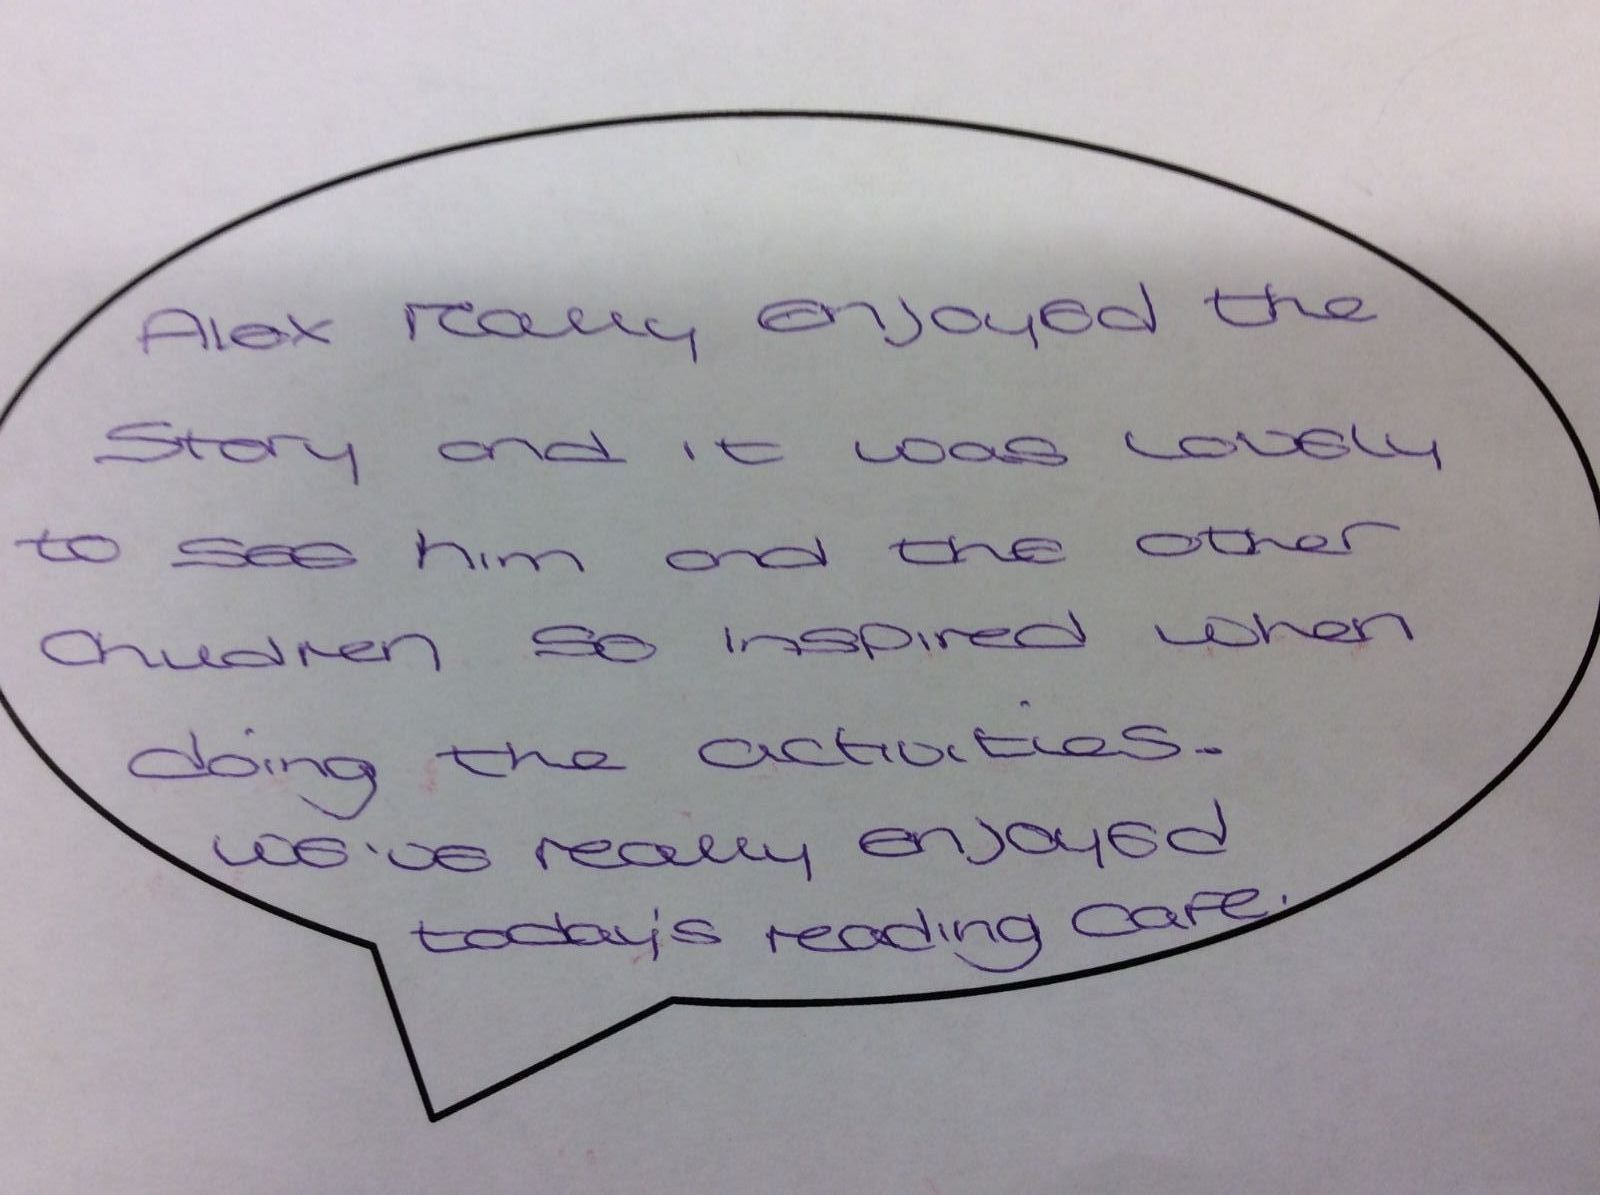 Alex really enjoyed the
Story and it was lovely
to see him and the other
Children so inspired when
doing the activities.
We've really enjoyed
today's reading Cafe.